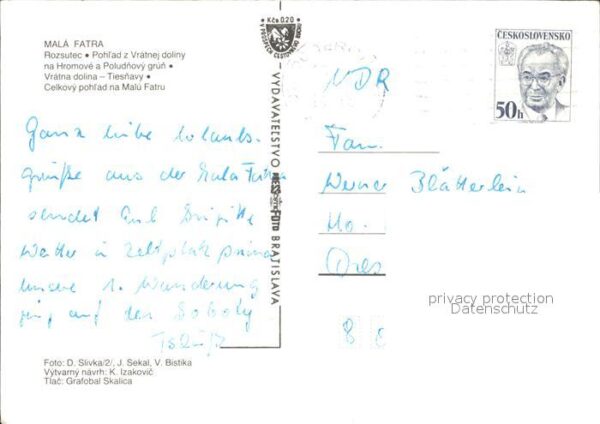 MALÁ FATRA
Rozsutec • Pohľad z Vrátnej doliny
na Hromové a Poludňový grúň •
Vrátna dolina – Tiesňavy •
Celkový pohľad na Malú Fatru
Ganz liebe Urlaubs-
grüße aus der Mala Fatra
sendet Euch Brigitte
Wetter u. Zeltplatz prima
unsere 1. Wanderung
ging auf den
Foto: D. Slivka/2/, J. Sekal, V. Bistika
Výtvarný návrh: K. Izakovič
Tlač: Grafobal Skalica
Kčs 0,20
VYDAVATEĽSTVO PRESSFOTO BRATISLAVA
ČESKOSLOVENSKO
50h
NDR
Fam.
Werner Blätterlein
Ho.
Dres
privacy protection
Datenschutz